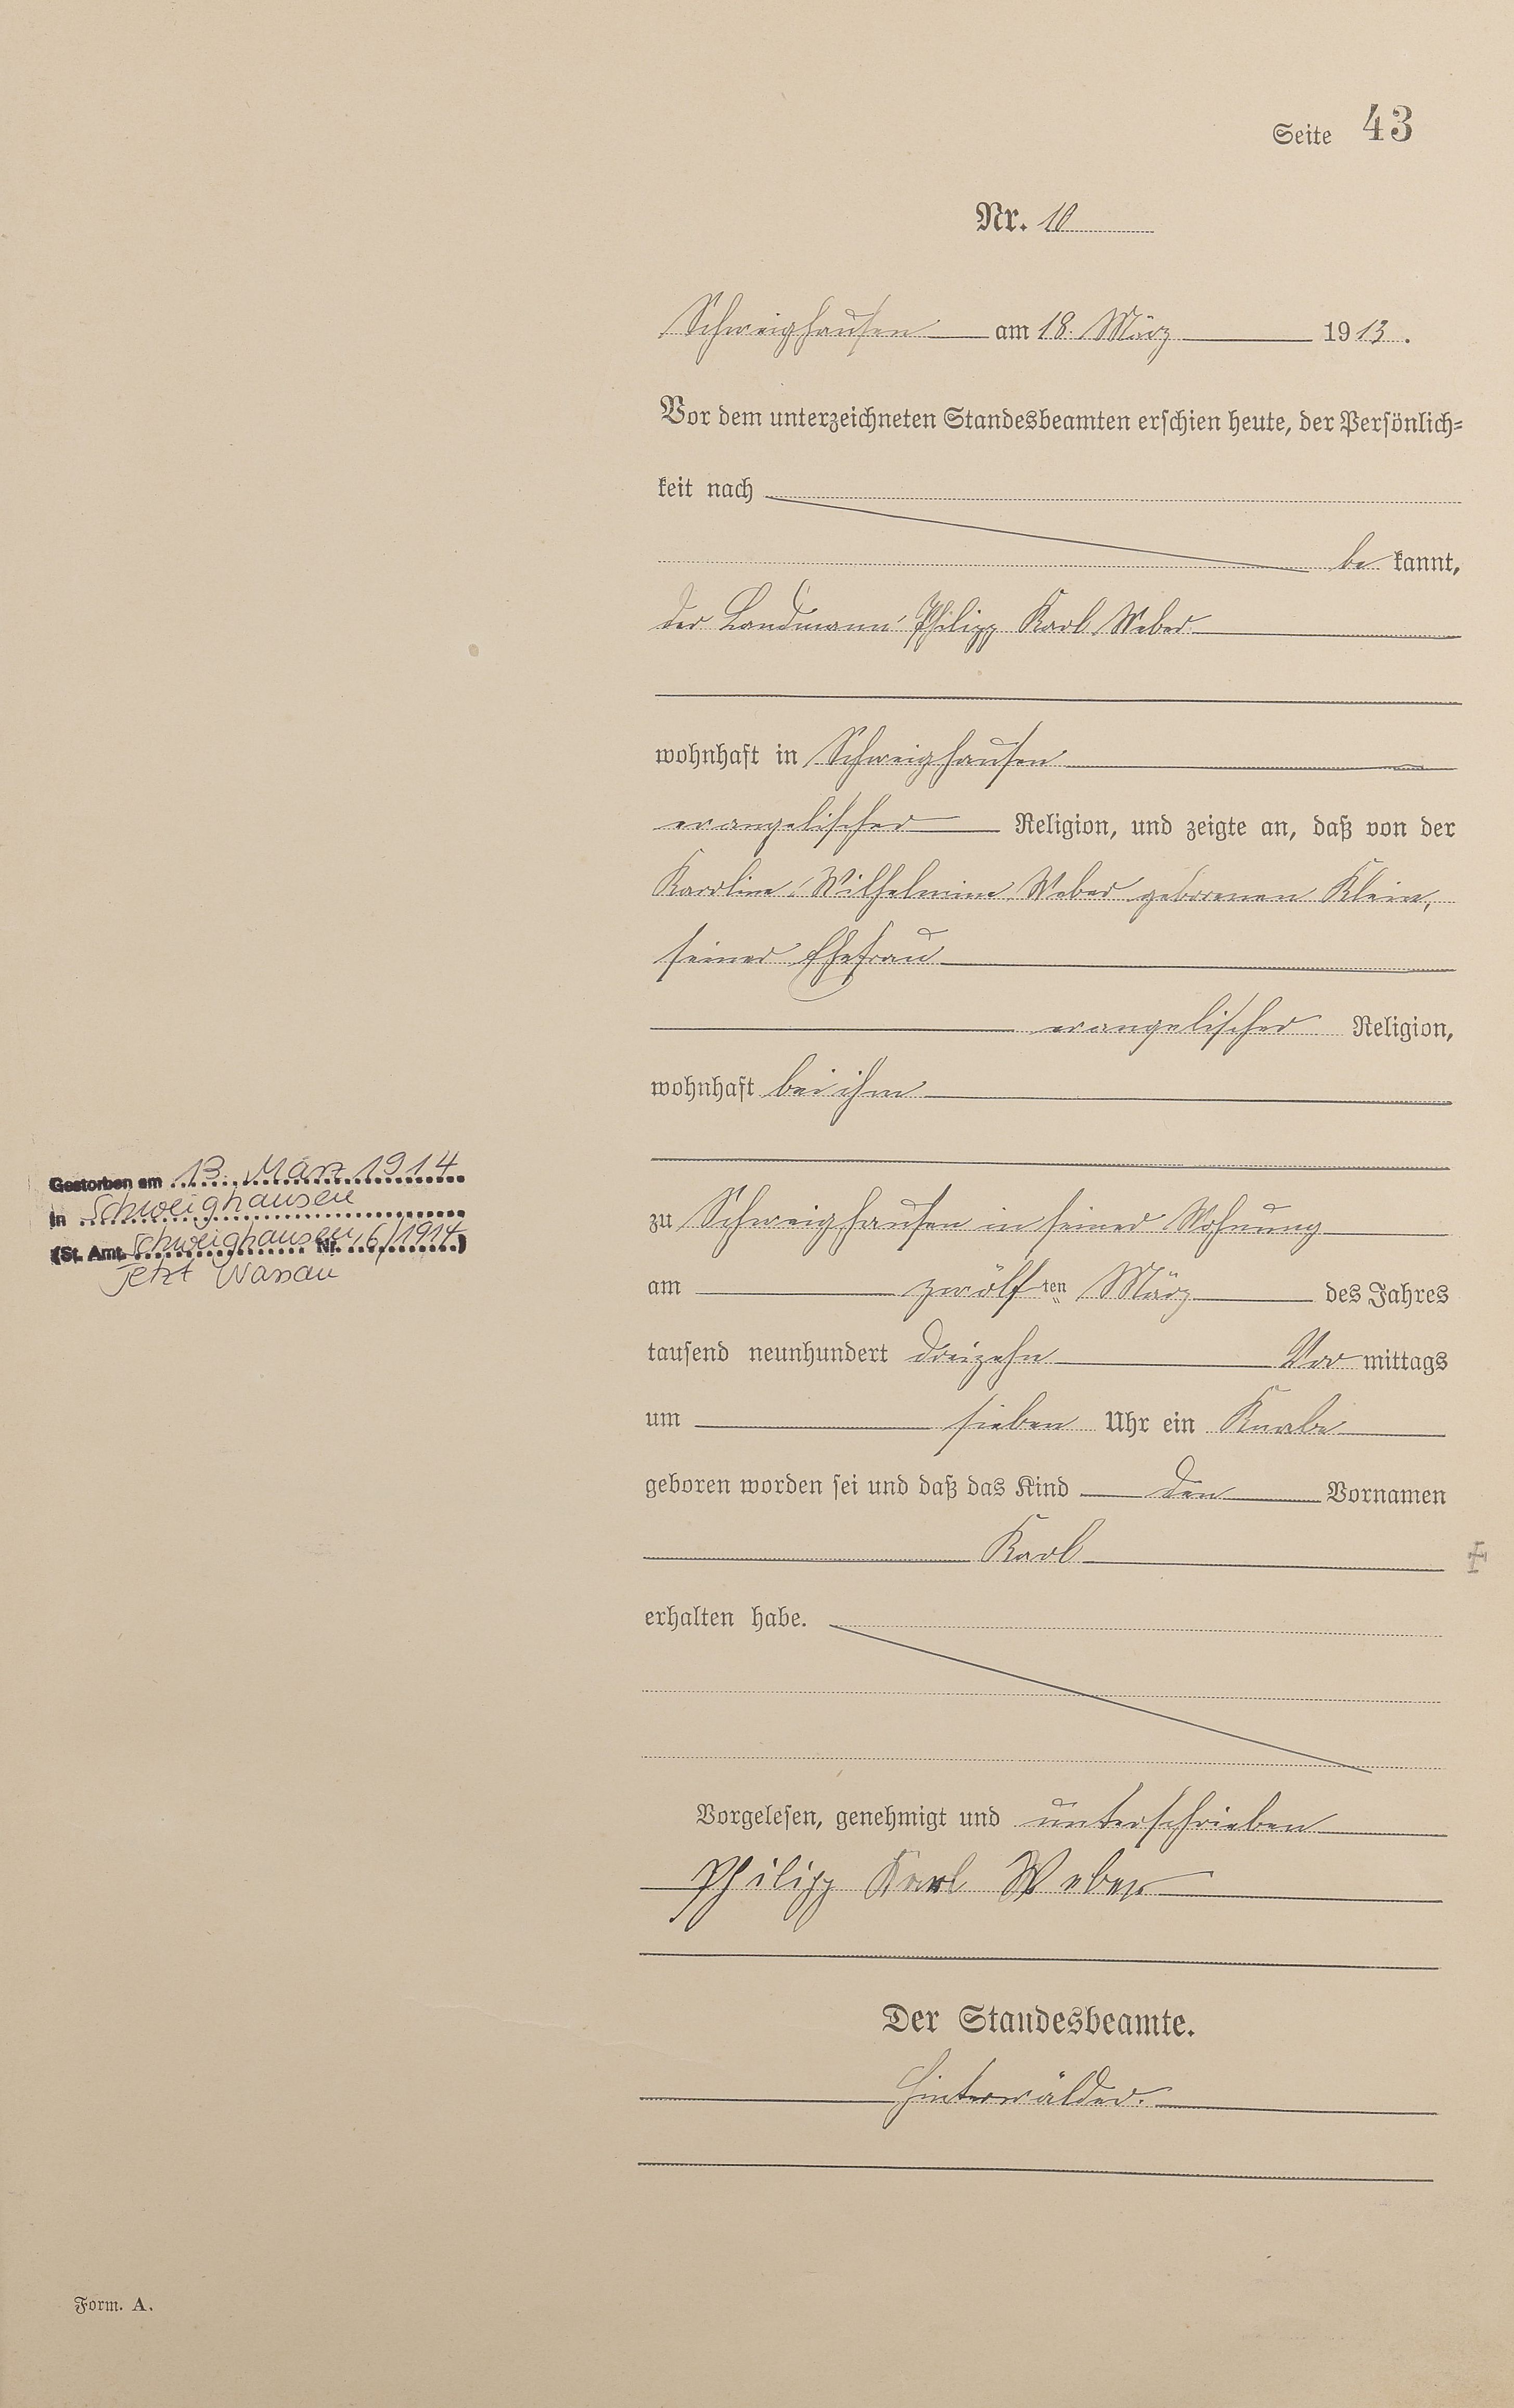 Seite 43
Nr. 10
Schweighausen am 18. März 1913.
Vor dem unterzeichneten Standesbeamten erschien heute, der Persönlich-
keit nach
be kannt,
der Landmann Philipp Karl Weber
wohnhaft in Schweighausen
evangelischer Religion, und zeigte an, daß von der
Karoline Wilhelmine Weber geborenen Klein,
seiner Ehefrau
evangelischer Religion,
wohnhaft bei ihm
zu Schweighausen in seiner Wohnung
am zwölf ten März des Jahres
tausend neunhundert dreizehn Vor mittags
um sieben Uhr ein Knabe
geboren worden sei und daß das Kind den Vornamen
Karl
erhalten habe.
Vorgelesen, genehmigt und unterschrieben
Philipp Karl Weber
Der Standesbeamte.
Hinterwälder.
Gestorben am 13. März 1914
in Schweighausen
(St. Amt Schweighausen Nr. 6/1914)
jetzt Nassau
Form. A.